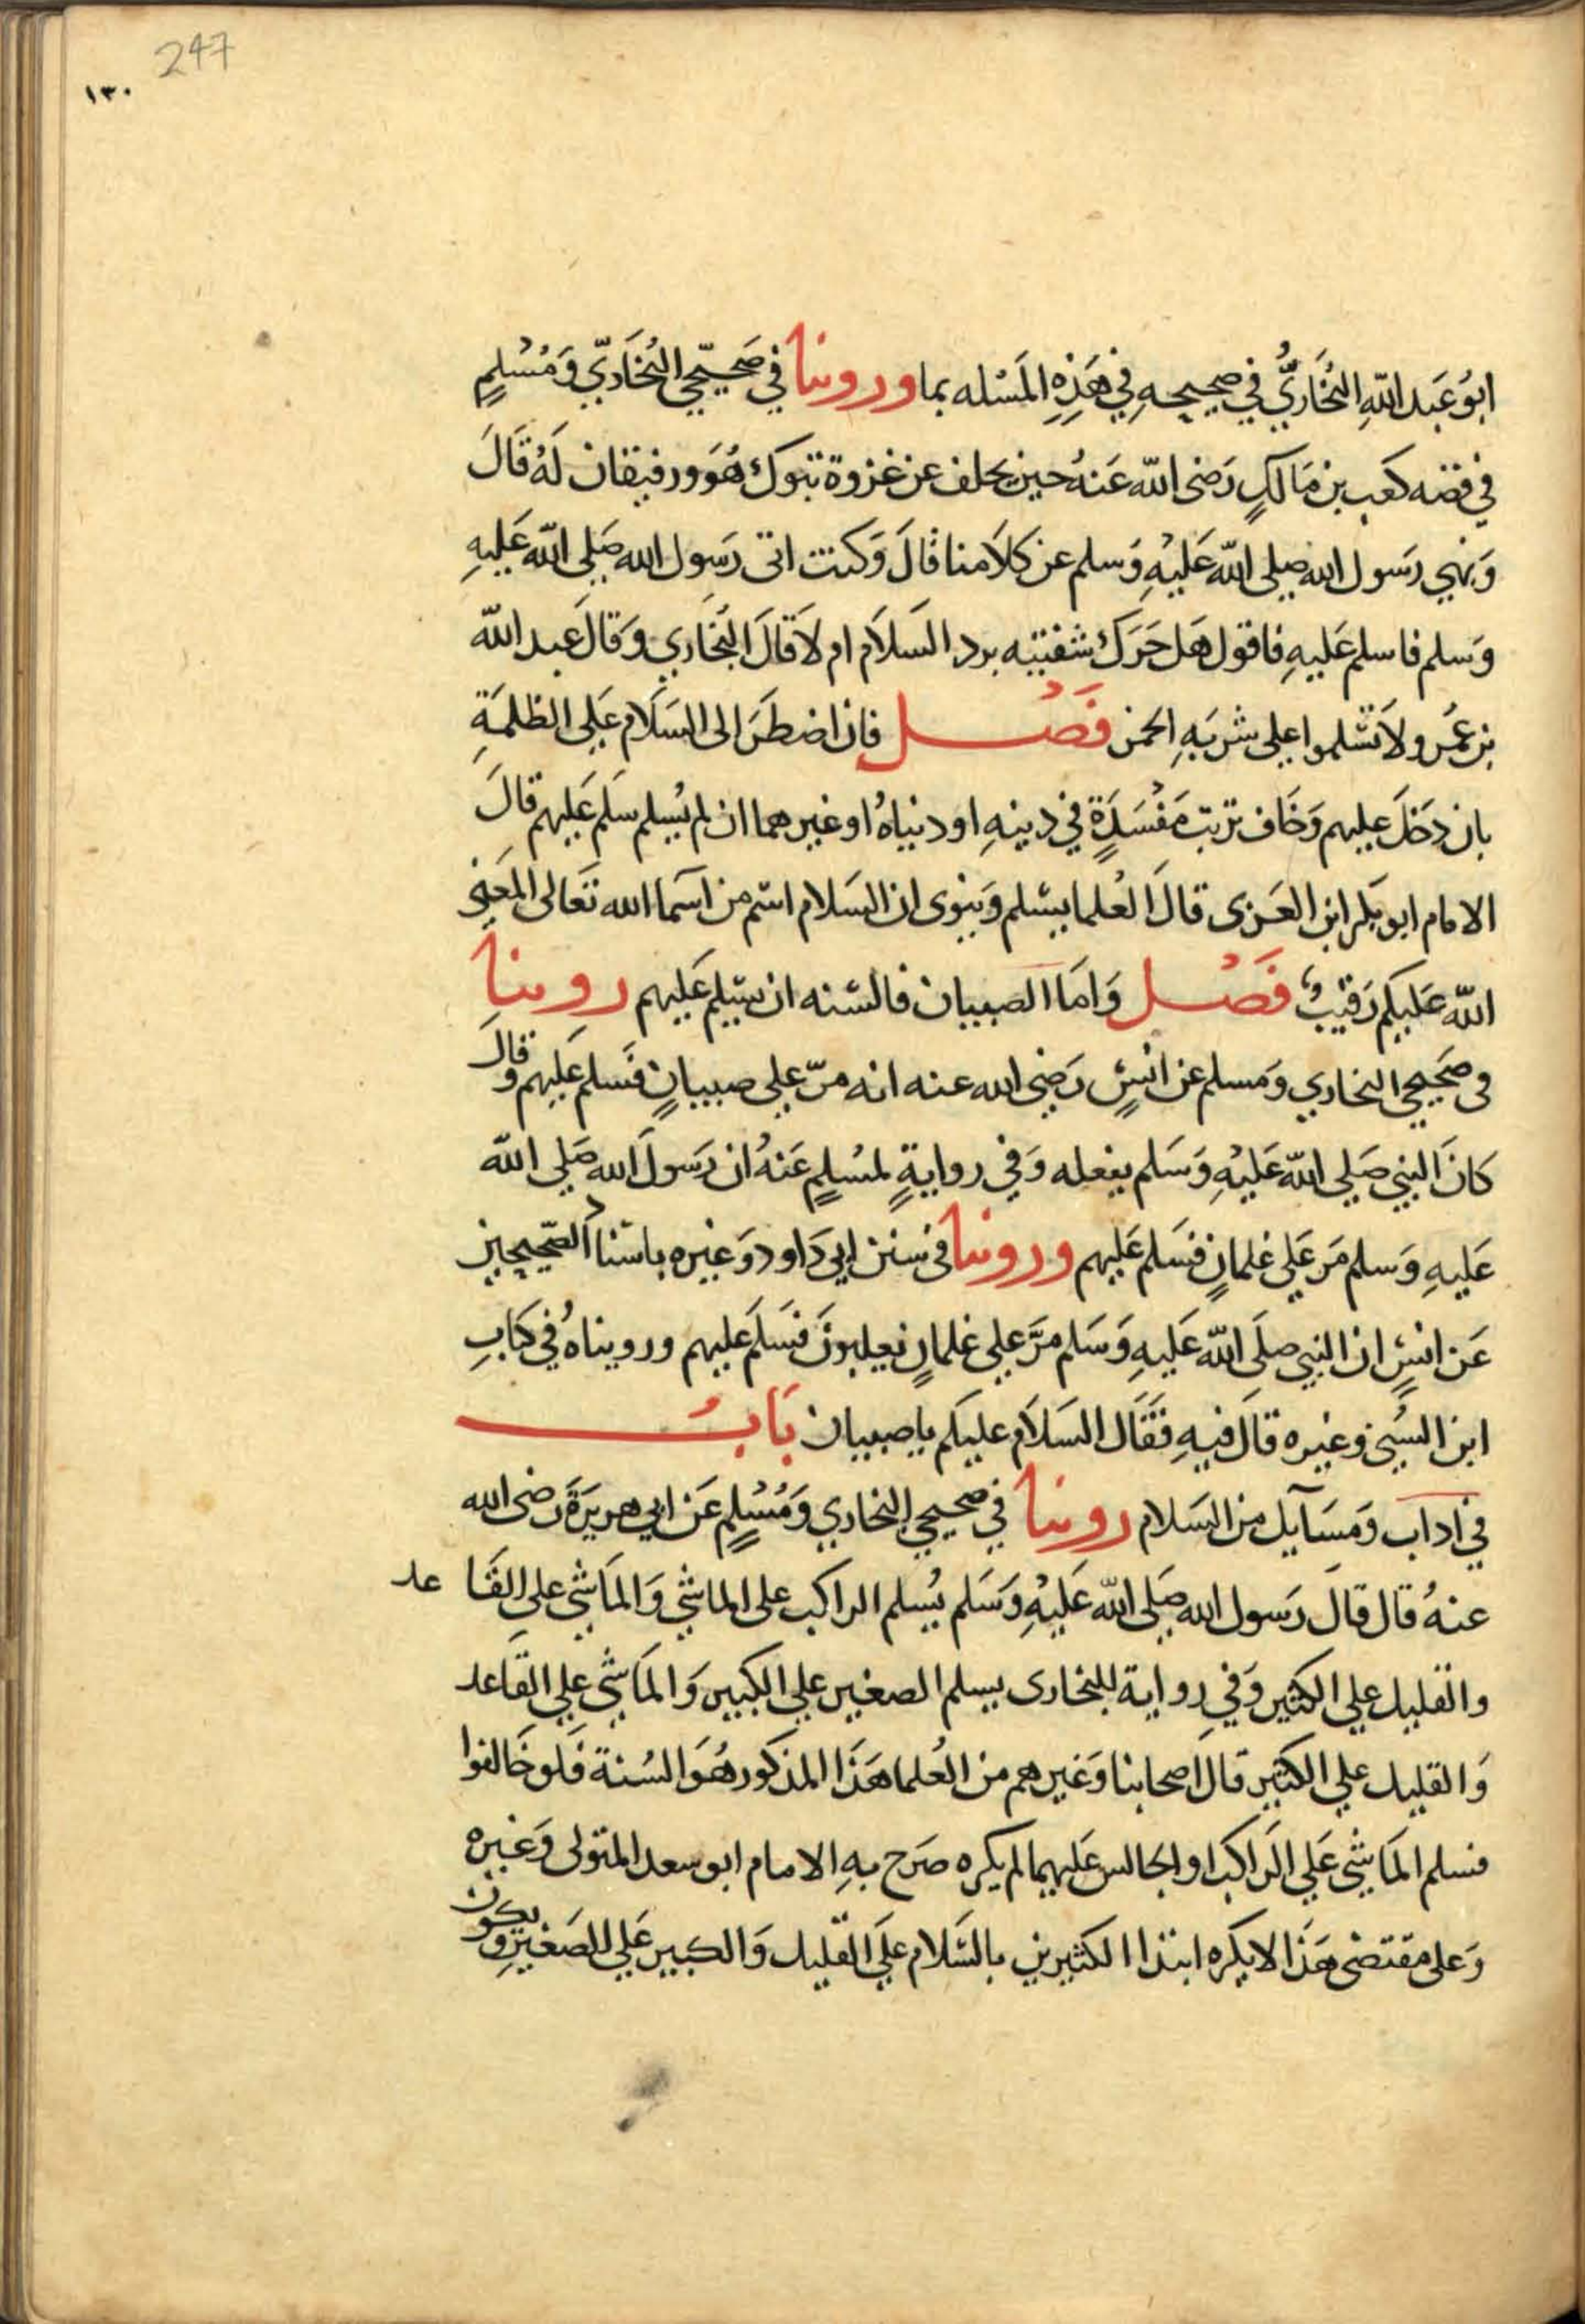 247
١٣٠
ابُو عَبد اللهِ البُخَاريُّ في صحيحهِ في هَذِهِ المَسْله بما ورويناَ في صَحيحَي البُخَاريّ وَمُسْلمٍ
في قصه كعَب بن مَالكٍ رَضى الله عَنهُ حين تخلف عن غزوة تبوك هُوَ ورفيقان لَهُ قَالَ
وَنهي رَسول الله صلى الله عَليْهِ وَسلم عن كلَامنا قالَ وَكنت اتى رَسول الله صَلى الله عَليهِ
وَسلم فاسلم عَليهِ فاقول هَل حَرَك شفتيه برد السَلَام ام لَا قَالَ البُخَاري وَقالَ عبد الله
بن عَمرو لَا تسْلموا على شربَهِ الخمر فَصْـل فان اضطَرَ الى السَلَام عَلى الظلمَةِ
بان دَخَل عليهم وَخَاف ترتب مَفْسَدَةٍ في دينهِ او دنياهُ او غيرهما ان لم يُسلم سَلم عَليهم قالَ
الامام ابو بَكر ابن العَربى قالَ العُلما يسَلم وَينوى ان السَلام اسْم من اسَما الله تعَالى المَعني
الله عَليكم رَقيبٌ فَصْـل وَامَا الصبيان فالسُنه ان يسَلم عَليهم روينا
فى صَحيحي البخاري وَمسلم عن انسٍ رَضي الله عنه انه مرّ على صبيانٍ فَسلم عَليهم وقالَ
كانَ النبي صَلي الله عَليْهِ وَسَلم يفعله وَفي روايةٍ لمسُلمٍ عَنهُ ان رَسولَ الله صَلي الله
عَليهِ وَسلم مَر عَلى غلمانٍ فسَلم عَليهم وروينا فى سنن ابي دَاود وَغيره باسنا الصّحيحين
د
عَن انسٍ ان النبي صلَى الله عَليهِ وَسَلم مرَّ على غلمانٍ يعلبونَ فسَلمَ عليهم ورويناهُ في كتابِ
ابن السُني وغيره قالَ فيهِ فقَالَ السَلَام عليكم يا صبيان بَابـُ
في اداب وَمسَآيل من السَلام روينا في صحيحي البخاري وَمُسْلمٍ عَن ابي هريرَةَ رَضى الله
عنهُ قال قالَ رَسول الله صَلى الله عَليْهِ وَسَلم يُسلم الراكب على الماشي وَالمَاشي على القَا عد
والقليل على الكثير وَفي رواية للبخارى يسلم الصغير على الكبير وَالمَاشي على القَاعد
وَالقليل على الكثير قالَ اصحابنا وَغيرهم من العُلما هَذَا المذكور هُوَ السُنة فَلو خَالفوا
فسلم المَاشي عَلي الرَاكب او الجالس عَليهما لم يكره صَرح بهِ الامام ابو سعد المتولى وَغيره
وَعلى مقتضى هَذَا لا يكره ابتدا الكثيرين بالسَلام عَلى القليل وَالكبير عَلى الصَغيرِ ويكون